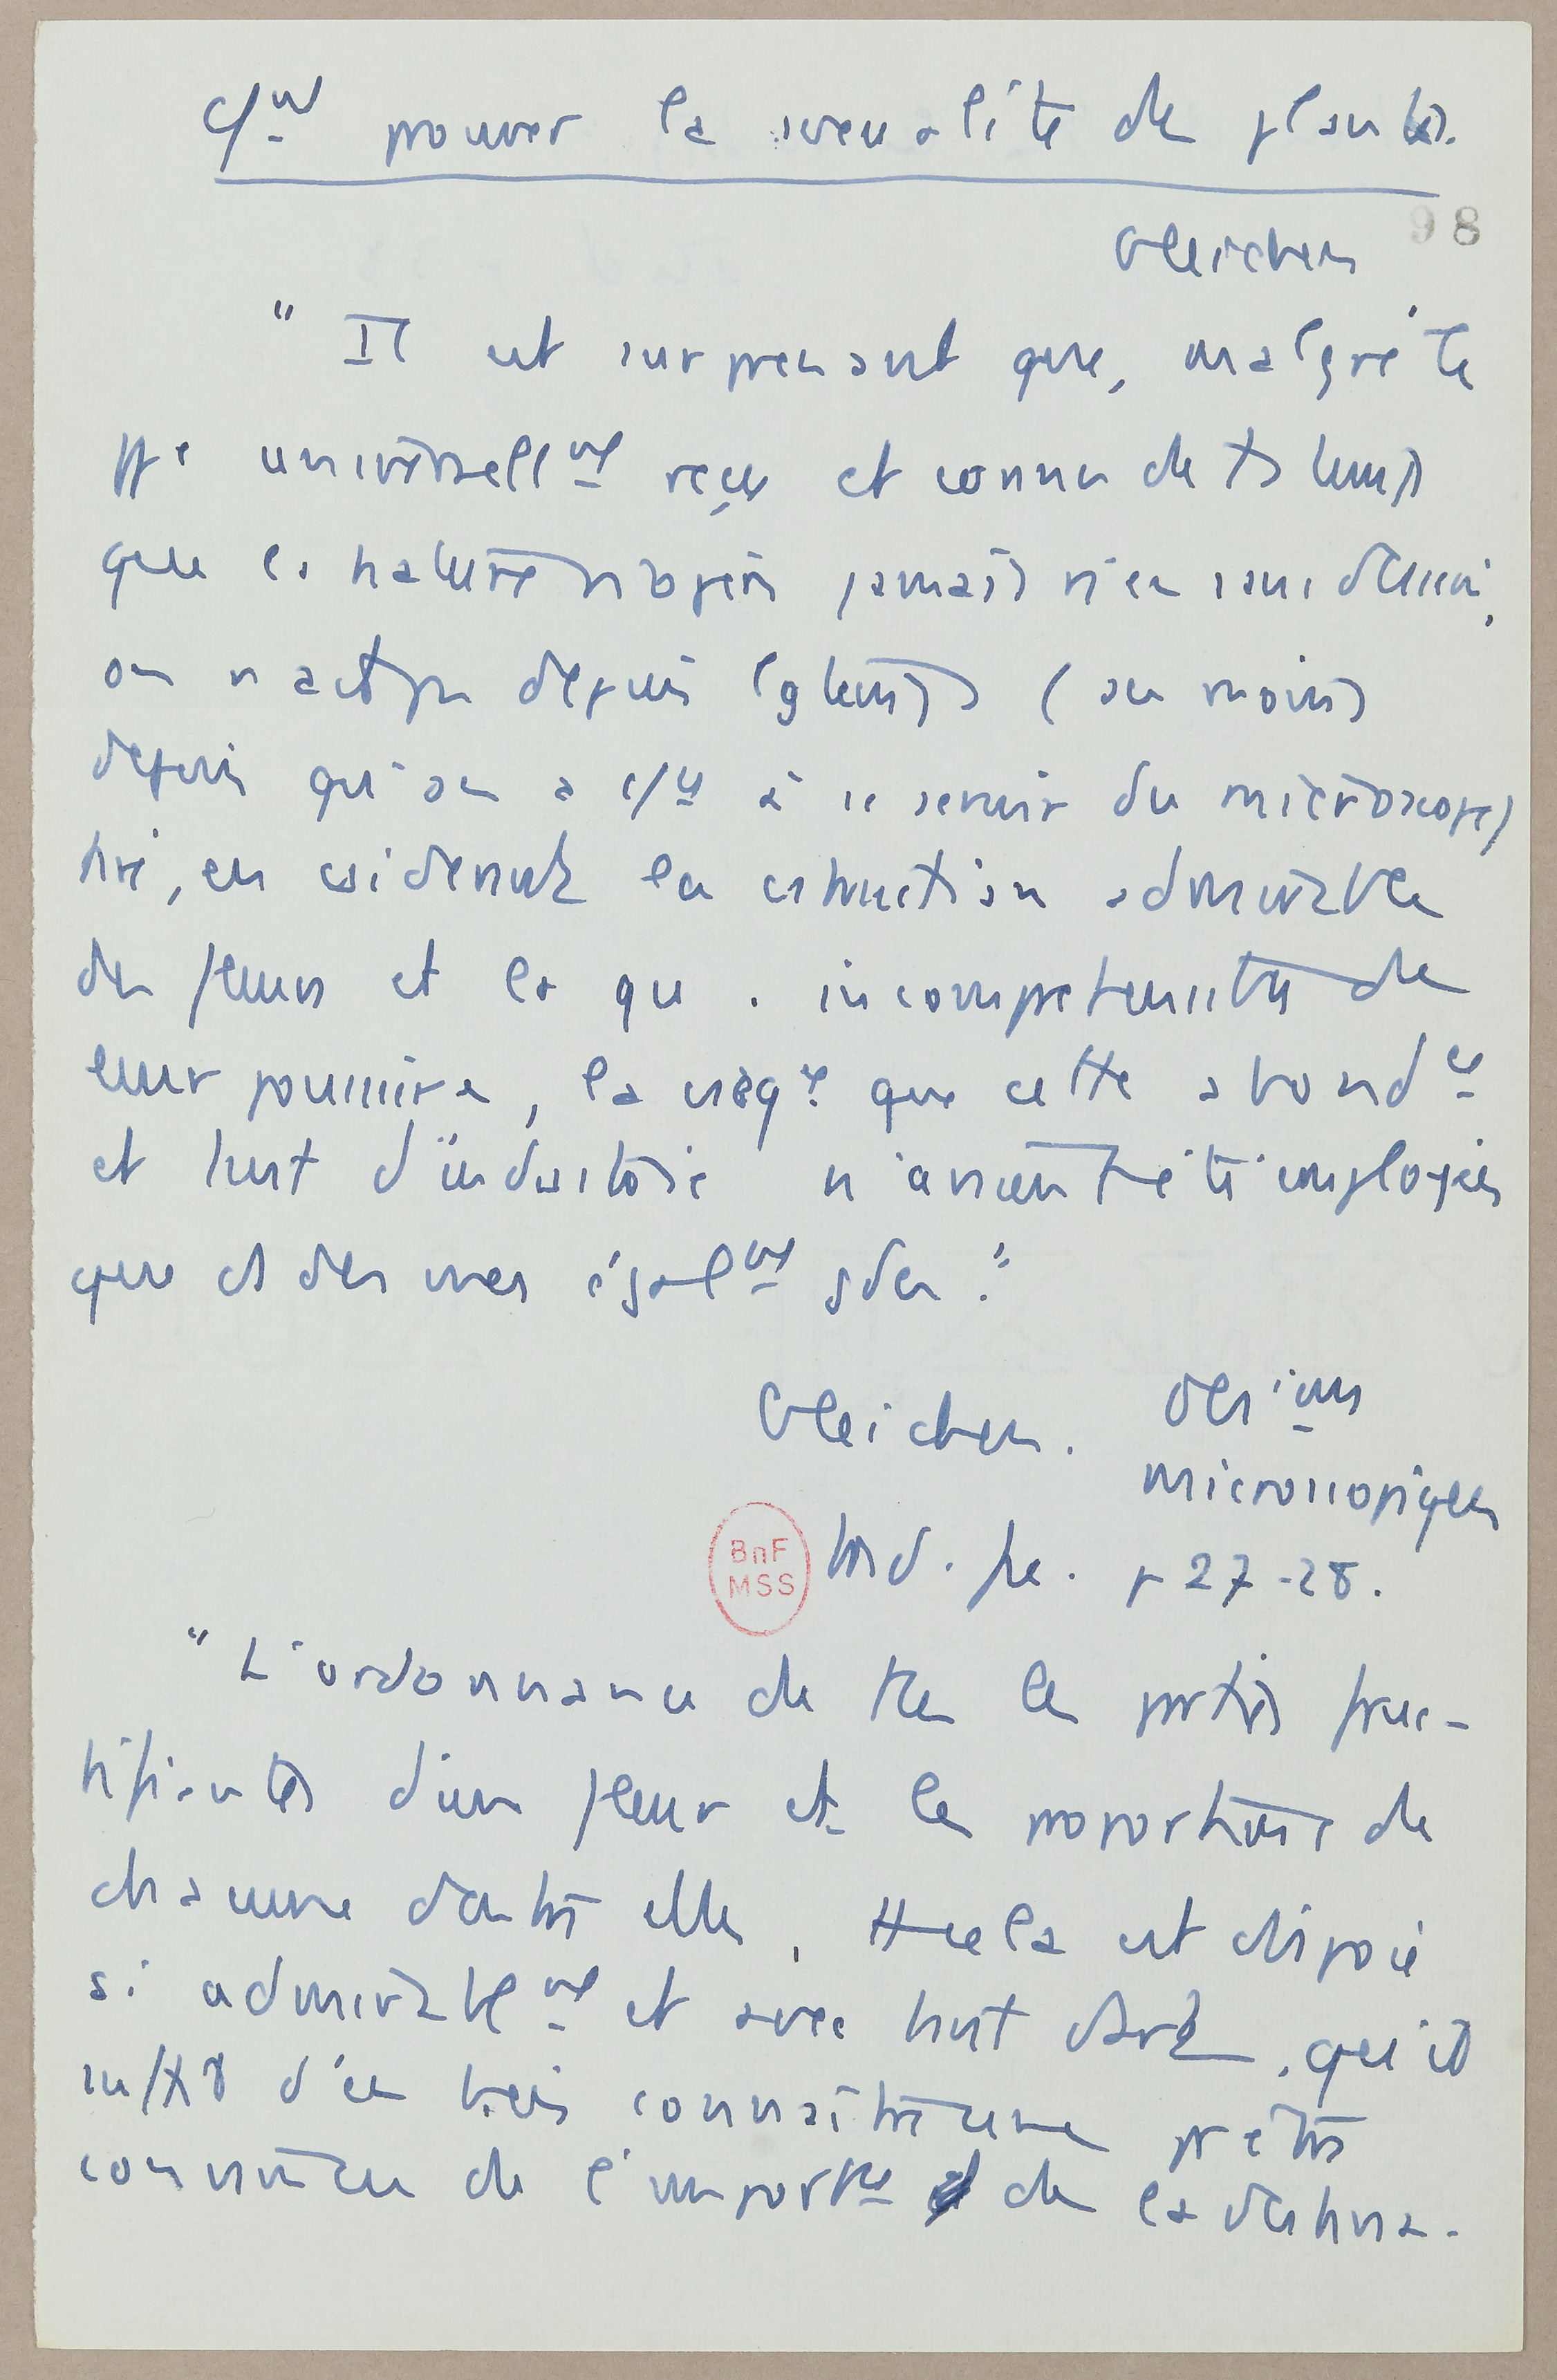 C/nt prouver la sexualité des plantes.
98
Gleichen
" Il est surprenant que, malgré le
ppe universellnt reçu et connu de ts temps
que la nature n'opère jamais rien sans dessein,
on n'ait pu depuis lgtemps (au moins
depuis qu'on a c/cé à se servir du microscope)
tiré, en considérant la construction admirable
des fleurs et la qu . incompréhensible de
leur poussière, la conséqce que cette abondce
et tout d'industrie n'avaient été employées
que ds des vues égalnt gdes."
Gleichen. Obs ions
microscopiques
trad. fse. p 27-28.
" L'ordonnance de ttes les parties fruc-
tifiantes d'une fleur et les proportions de
chacune d'entre elles, tt cela est disposé
si admirablent et avec tant d'art, qu'il
suffit d'en bien connaître une pr être
convaincu de l'importce de la destina-